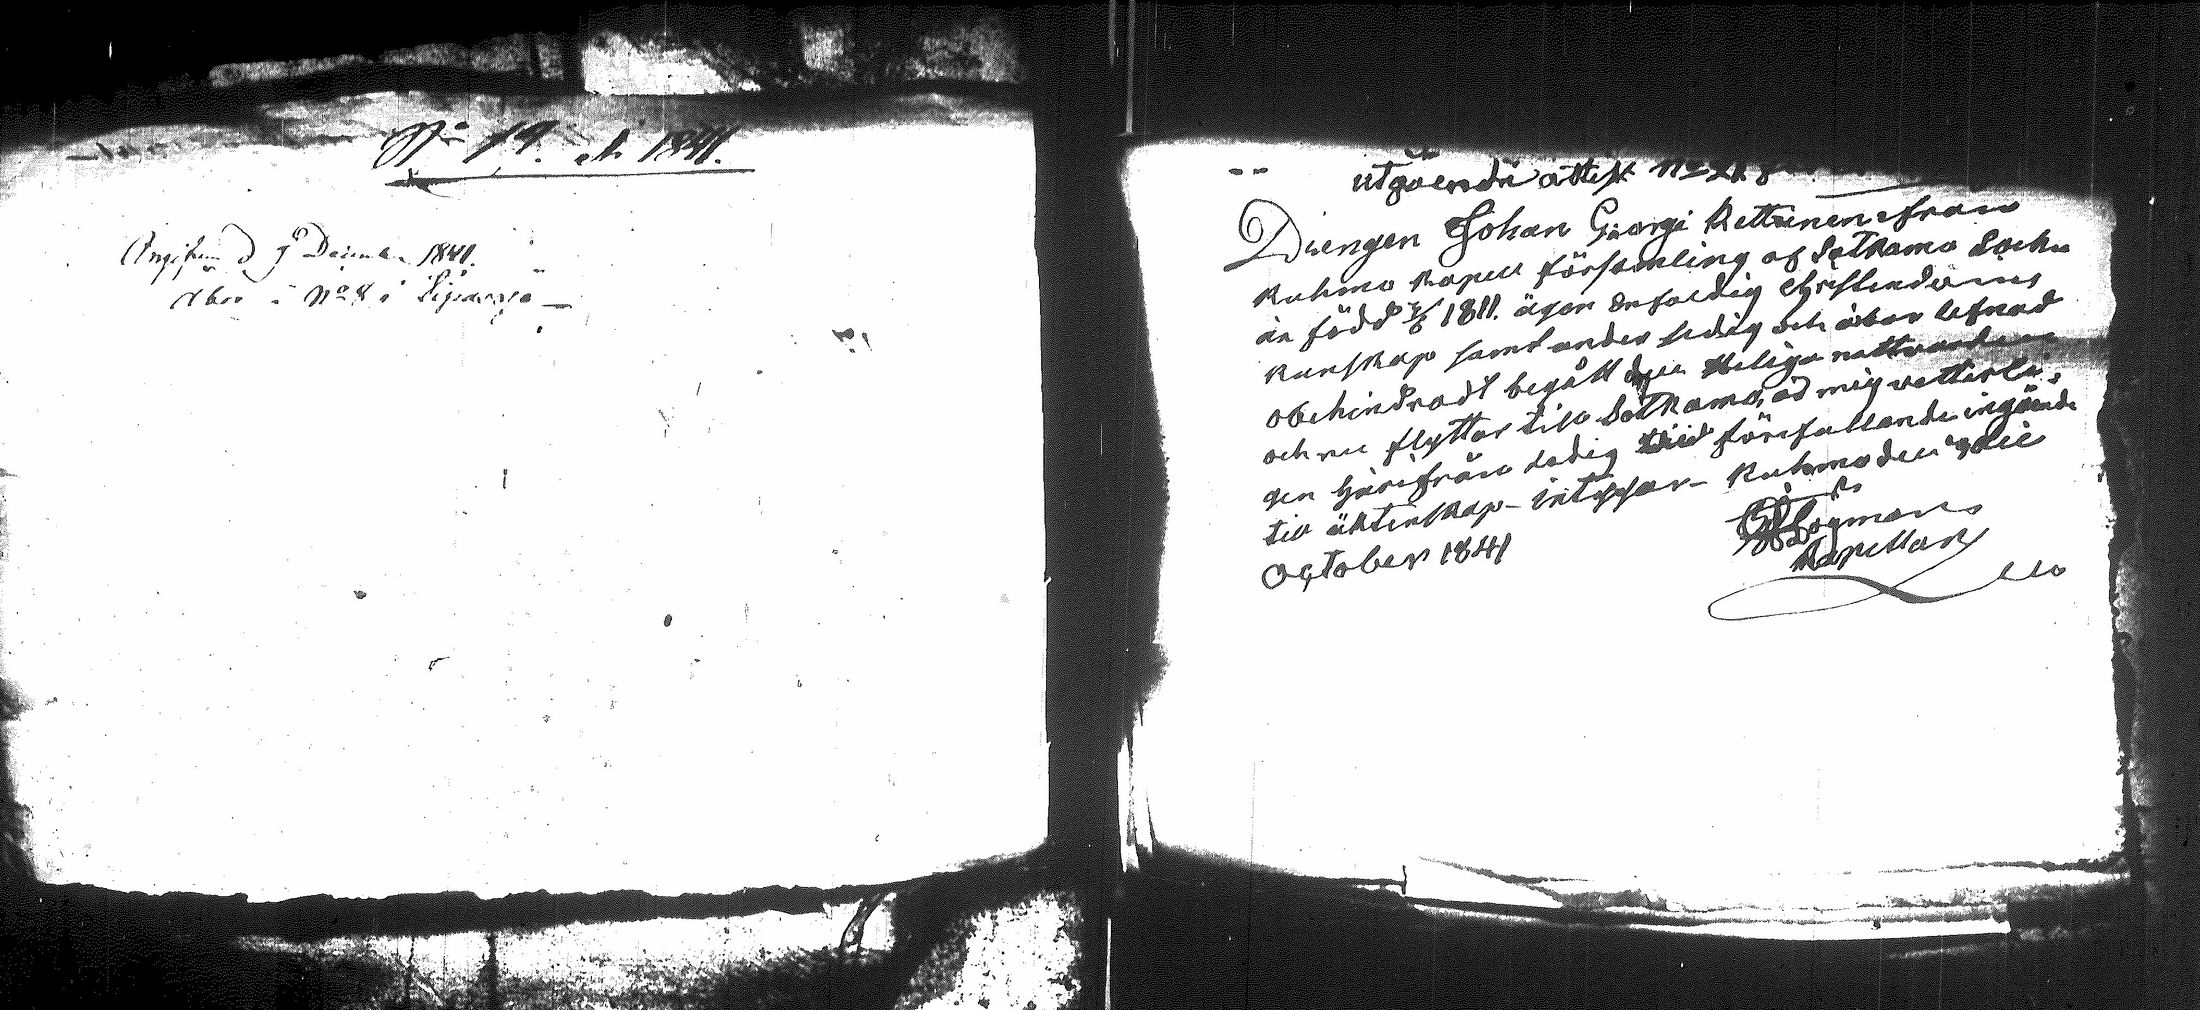 No 19. 1841.
d 9 December 1841.
Abor i No 8 i
utgående attest No
Drengen Johan Georgi Kettunen ifrån
Kuhmo Kapell församling af Sotkamo Sockn
är född 1811. äger enfaldig Christendoms
kunskap samt under sedig och ärbar lefnad
obehindradt begått den Heliga nattvarden
och nu flyttar till Sotkamo, ad mig vetterli-
gen härifrån ledig till förefallande ingående
till äktenskap intygar Kuhmo den
October 1841
Kapellan